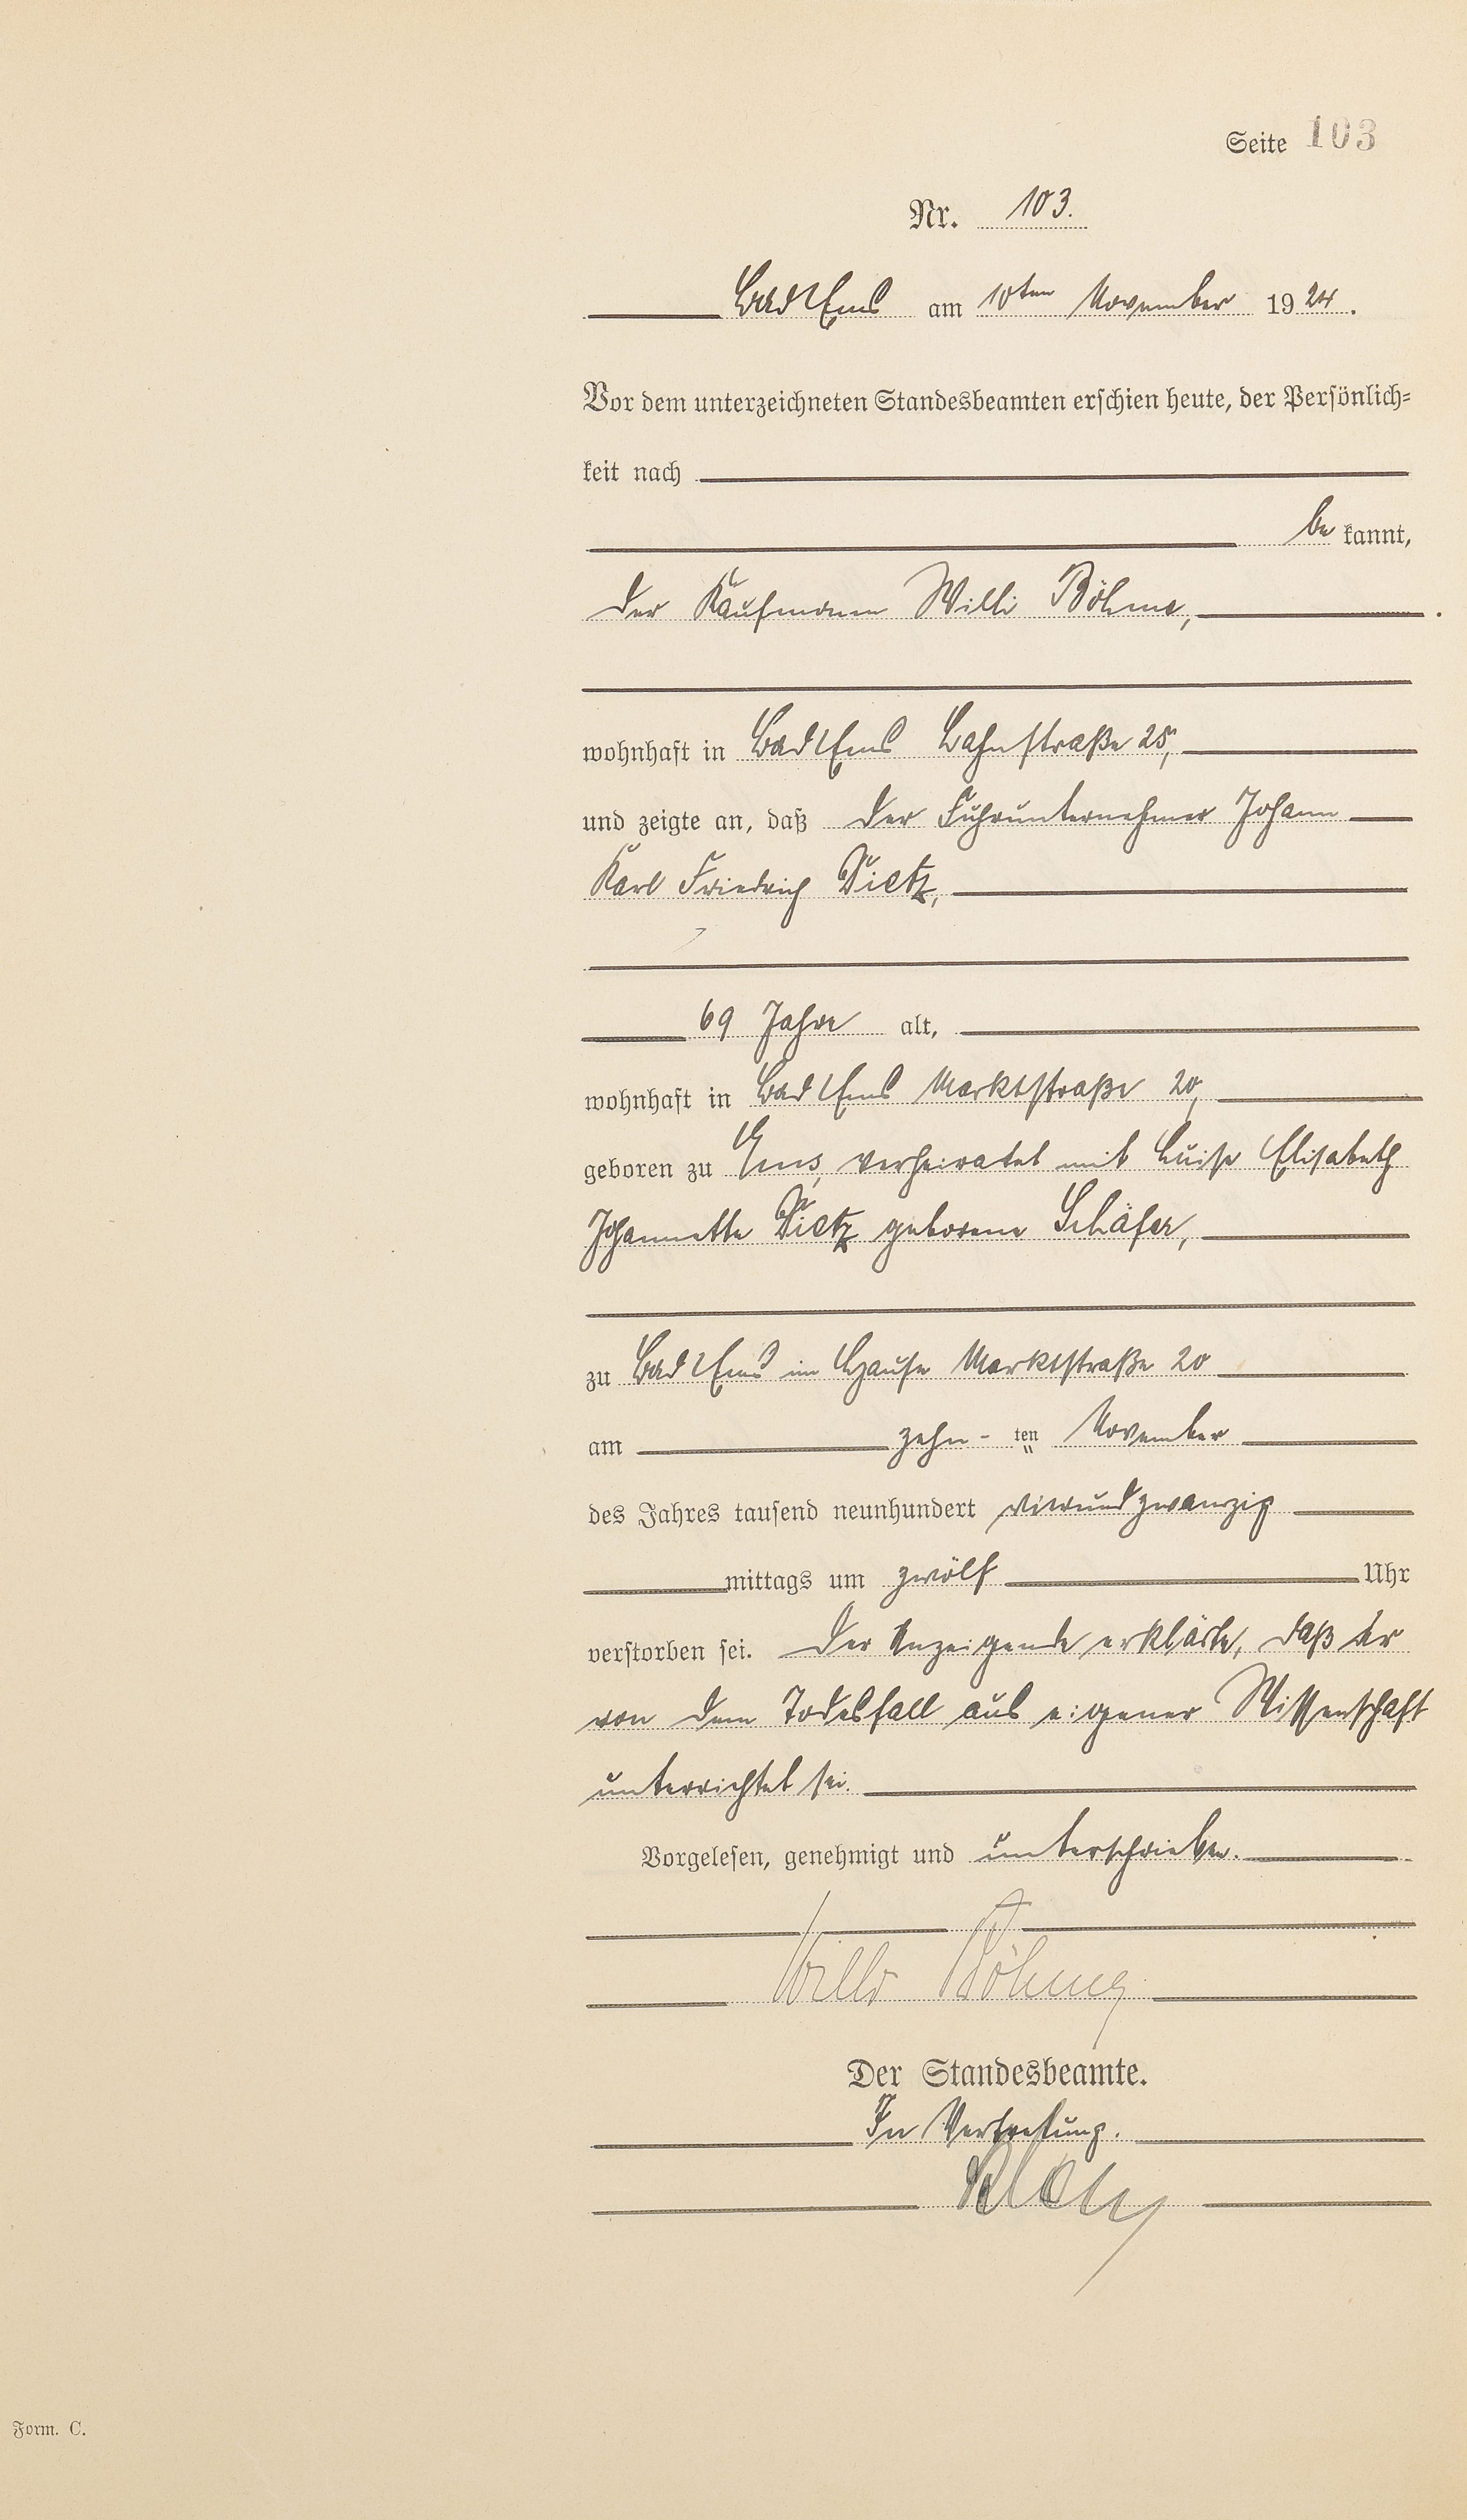 Seite 103
Nr. 103.
Bad Ems am 10ten November 1924.
Vor dem unterzeichneten Standesbeamten erschien heute, der Persönlich=
keit nach
be kannt,
der Kaufmann Willi Böhme,
wohnhaft in Bad Ems Lahnstraße 25,
und zeigte an, daß der Fuhrunternehmer Johann
Karl Friedrich Dietz,
69 Jahre alt,
wohnhaft in Bad Ems Marktstraße 20,
geboren zu Ems, verheiratet mit Luise Elisabeth
Johannette Dietz geborene Schäfer,
zu Bad Ems im Hause Marktstraße 20
am zehn-ten November
des Jahres tausend neunhundert vierundzwanzig
mittags um zwölf Uhr
verstorben sei. Der Anzeigende erklärte, daß er
von dem Todesfall aus eigener Wissenschaft
unterrichtet sei.
Vorgelesen, genehmigt und unterschrieben.
Willi Böhme
Der Standesbeamte.
In Vertretung.
Form. C.